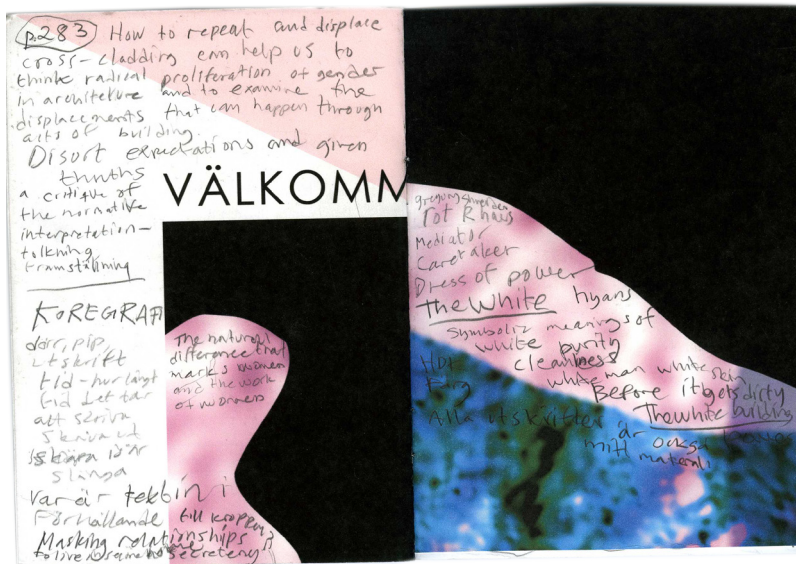 p.283 How to repeat and displace
cross-cladding can help us to
think radical proliferation of gender
in architekure and to examine the
displacements that can happen through
acts of building.
Disort expectations and given
thruths
a critique of
the normative
interpretation-
tolkning
framställning
VÄLKOMM
KOREGRAFI
dörr, pip,
utskrift
tid - hur långt
tid det tar
att skriva
skriva ut
slänga
The natural
difference that
marks women
and the work
of women
var är i
Förhållande till kroppen?
Masking relationships
to live secretery
Tot Rhaus
Mediator
Caretaker
Dress of power
The White hyans
Symboliz meanings of
white purity
cleanness
white man white skin
Before it gets dirty
The white building
Färg
Alla utskrifter
är också
mitt material